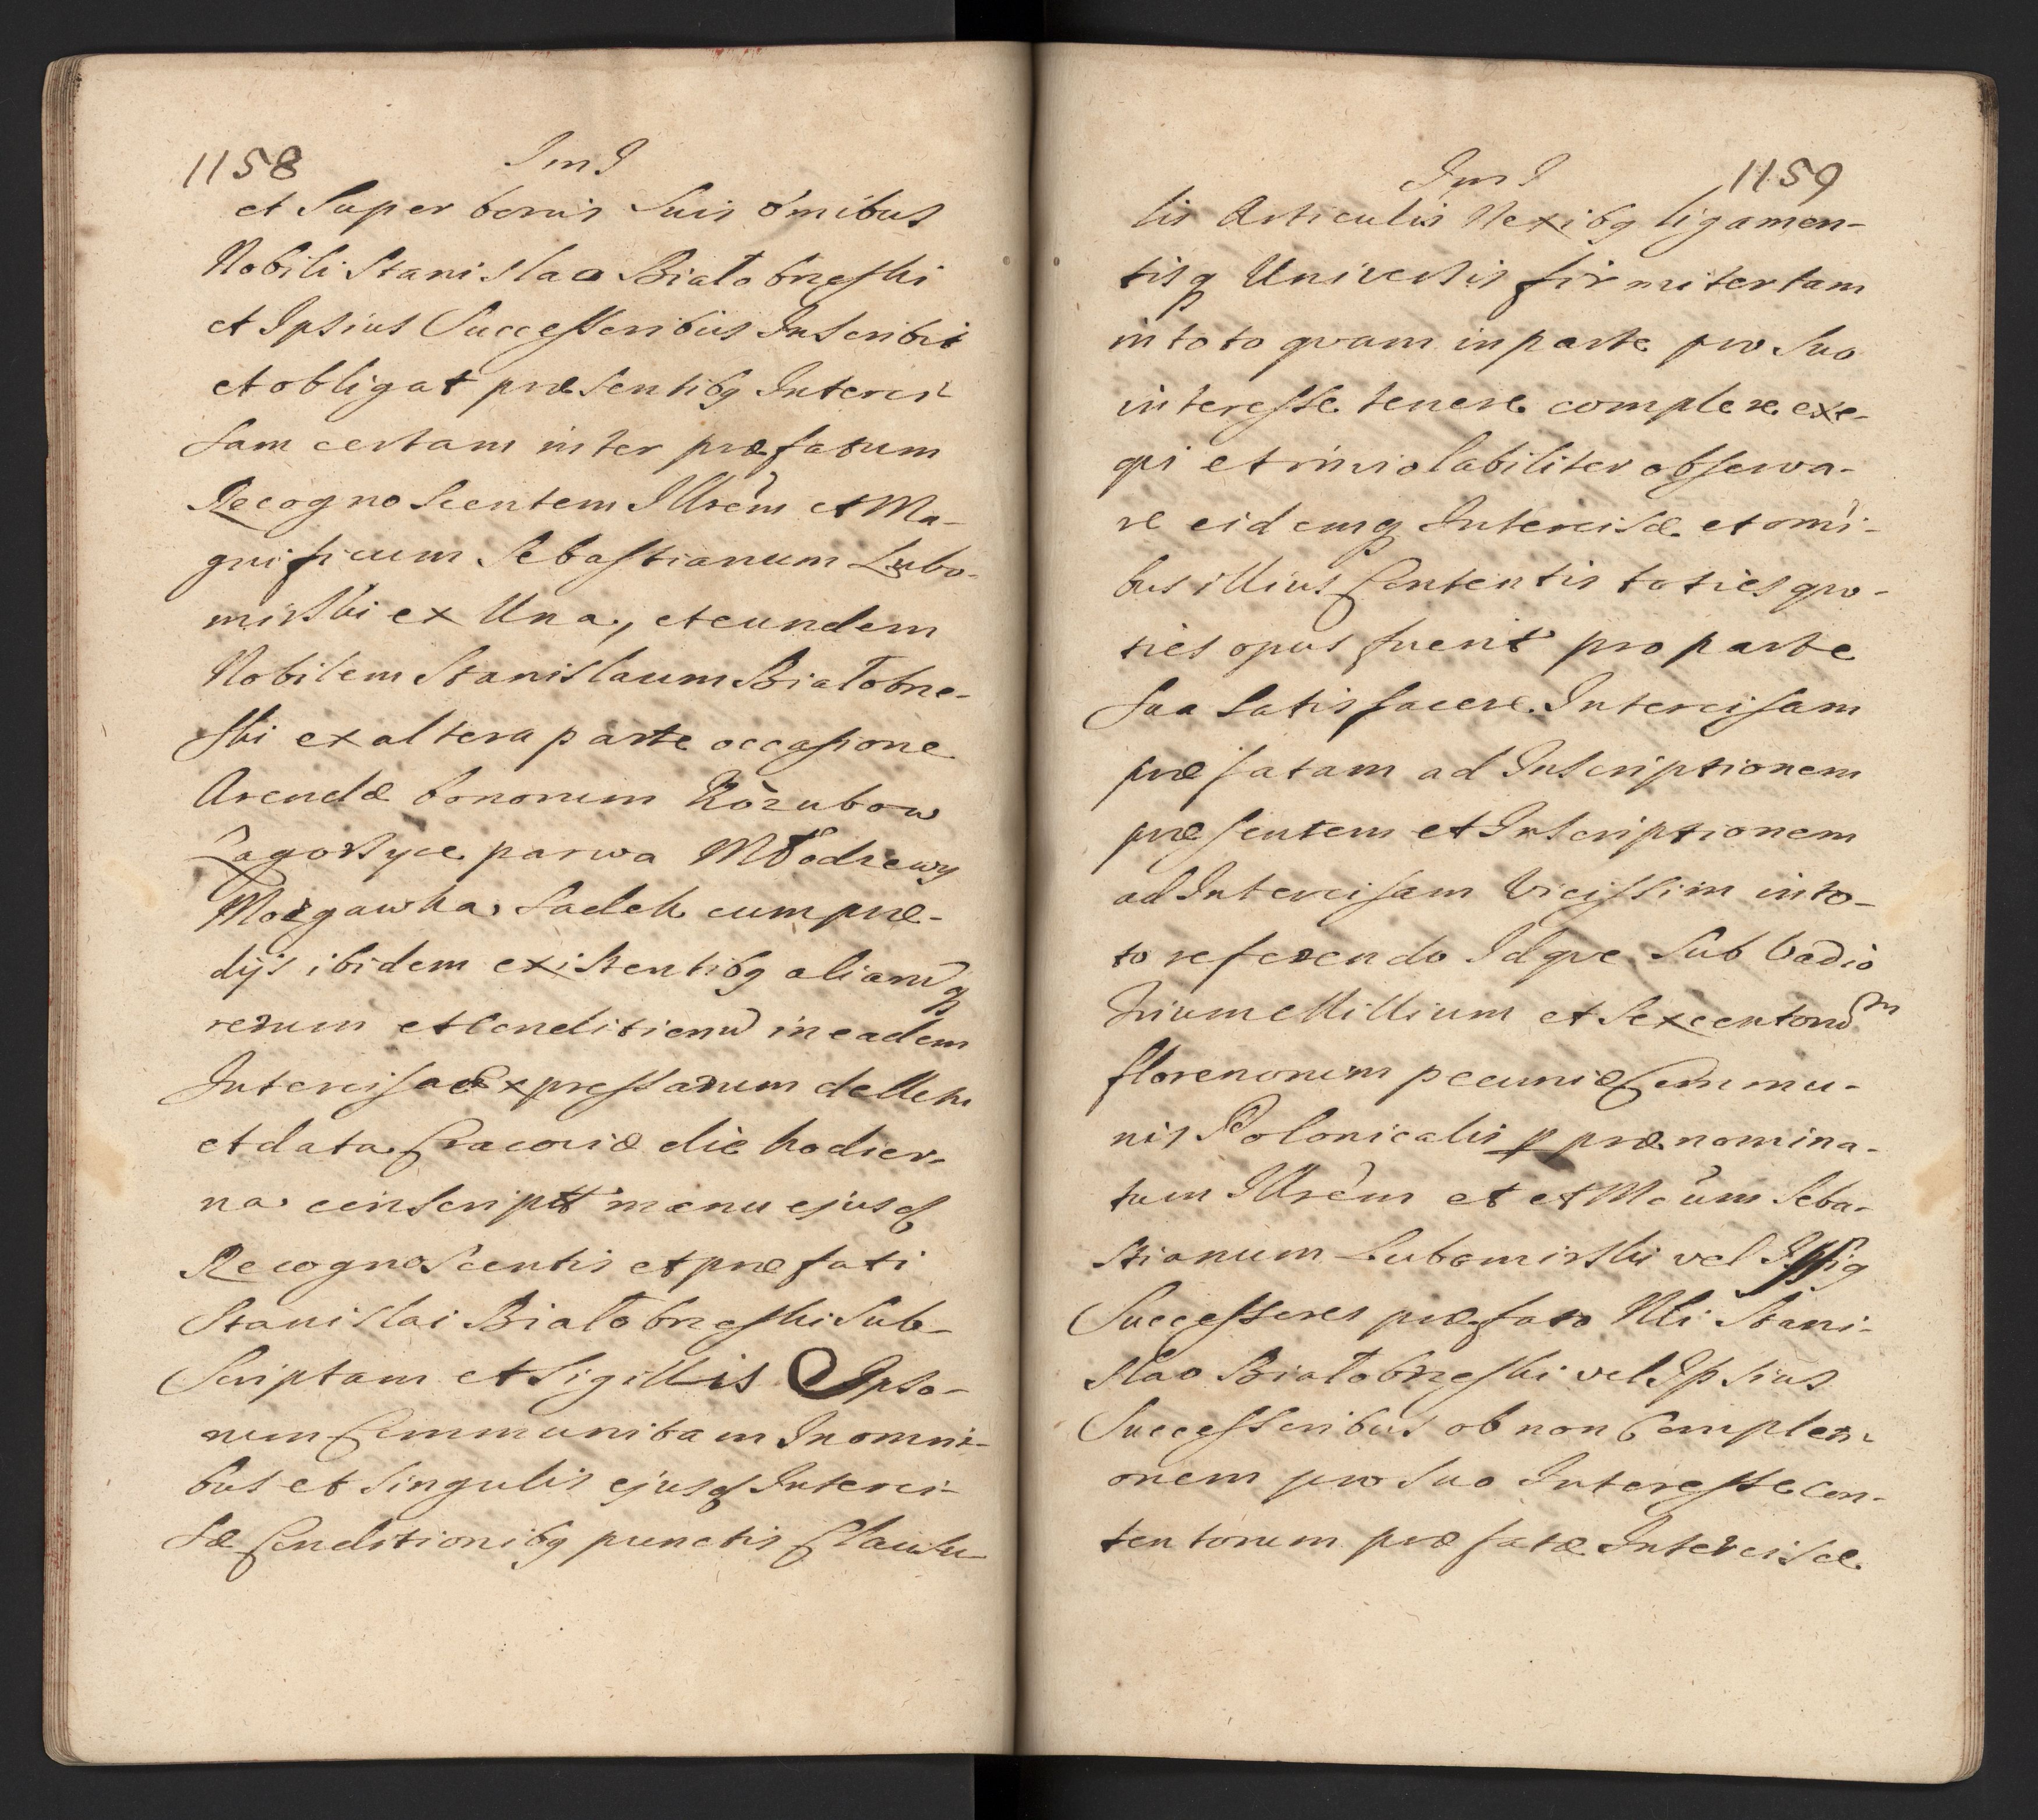 1158
ImI
et Super bonis Suis omibus
Nobili Stanislao Białobrzeski
et Ipsius Successoribus Inscribit
et obligat præsentibq Interci
sam certam inter præfatum
Recognoscentem Illrem et Ma-
gnificum Sebastianum Lubo-
mirski ex Una, et eundem
Nobilem Stanislaum Białobrze-
ski ex altera parte occasione
Arendæ bonorum Rozubow
Zagostyce parwa Młodzewy
Mozgawka, Sadek cum præ-
dijs ibidem existentibq aliarūq
rerum et Conditionū in eadem
Intercisa Expressarum de
et data Cracoviæ die hodier-
na conscript manu ejusd
Recognoscentis et præfati
Stanislai Białobrzeski Sub-
Scriptam et Sigillis Ipso-
rum Communitam In omni-
bus et Singulis ejusd Interci-
sæ Conditionibq punctis Clausu-
ImI
1159
lis Articulis Nexibq ligamen-
tisq Universis firmiter tam
in toto qvam in parte pro Suo
interesse tenere complere exe-
qvi et inviolabiliter observa-
re eidemq Intercisæ et omi-
bus illius Contentis toties qvo-
ties opus fuerit pro parte
Sua Satisfacere. Intercisam
præfatam ad Inscriptionem
præsentem et Inscriptionem
ad Intercisam Vicissim in to-
to referendo Idqve Sub Vadio
Trium Millium et Sexcentorū m
florenorum pecuniæ Commu-
nis Polonicalis p prænomina-
tum Illrem et et Mcum Seba-
stianum Lubomirski vel Ipsiq
Successores præfato Nli Stani-
slao Białobrzeski vel Ipsius
Successoribus ob non Completi-
onem pro Suo Interesse Con-
tentorum præfatæ Intercisæ